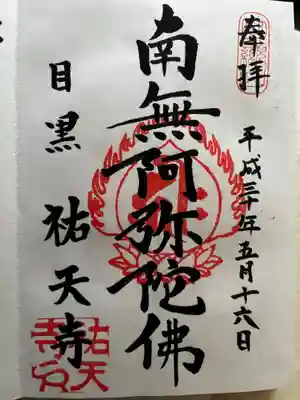 奉拝
平成三十年五月十六日
南無阿弥陀佛
目黒 祐天寺
祐天
寺印